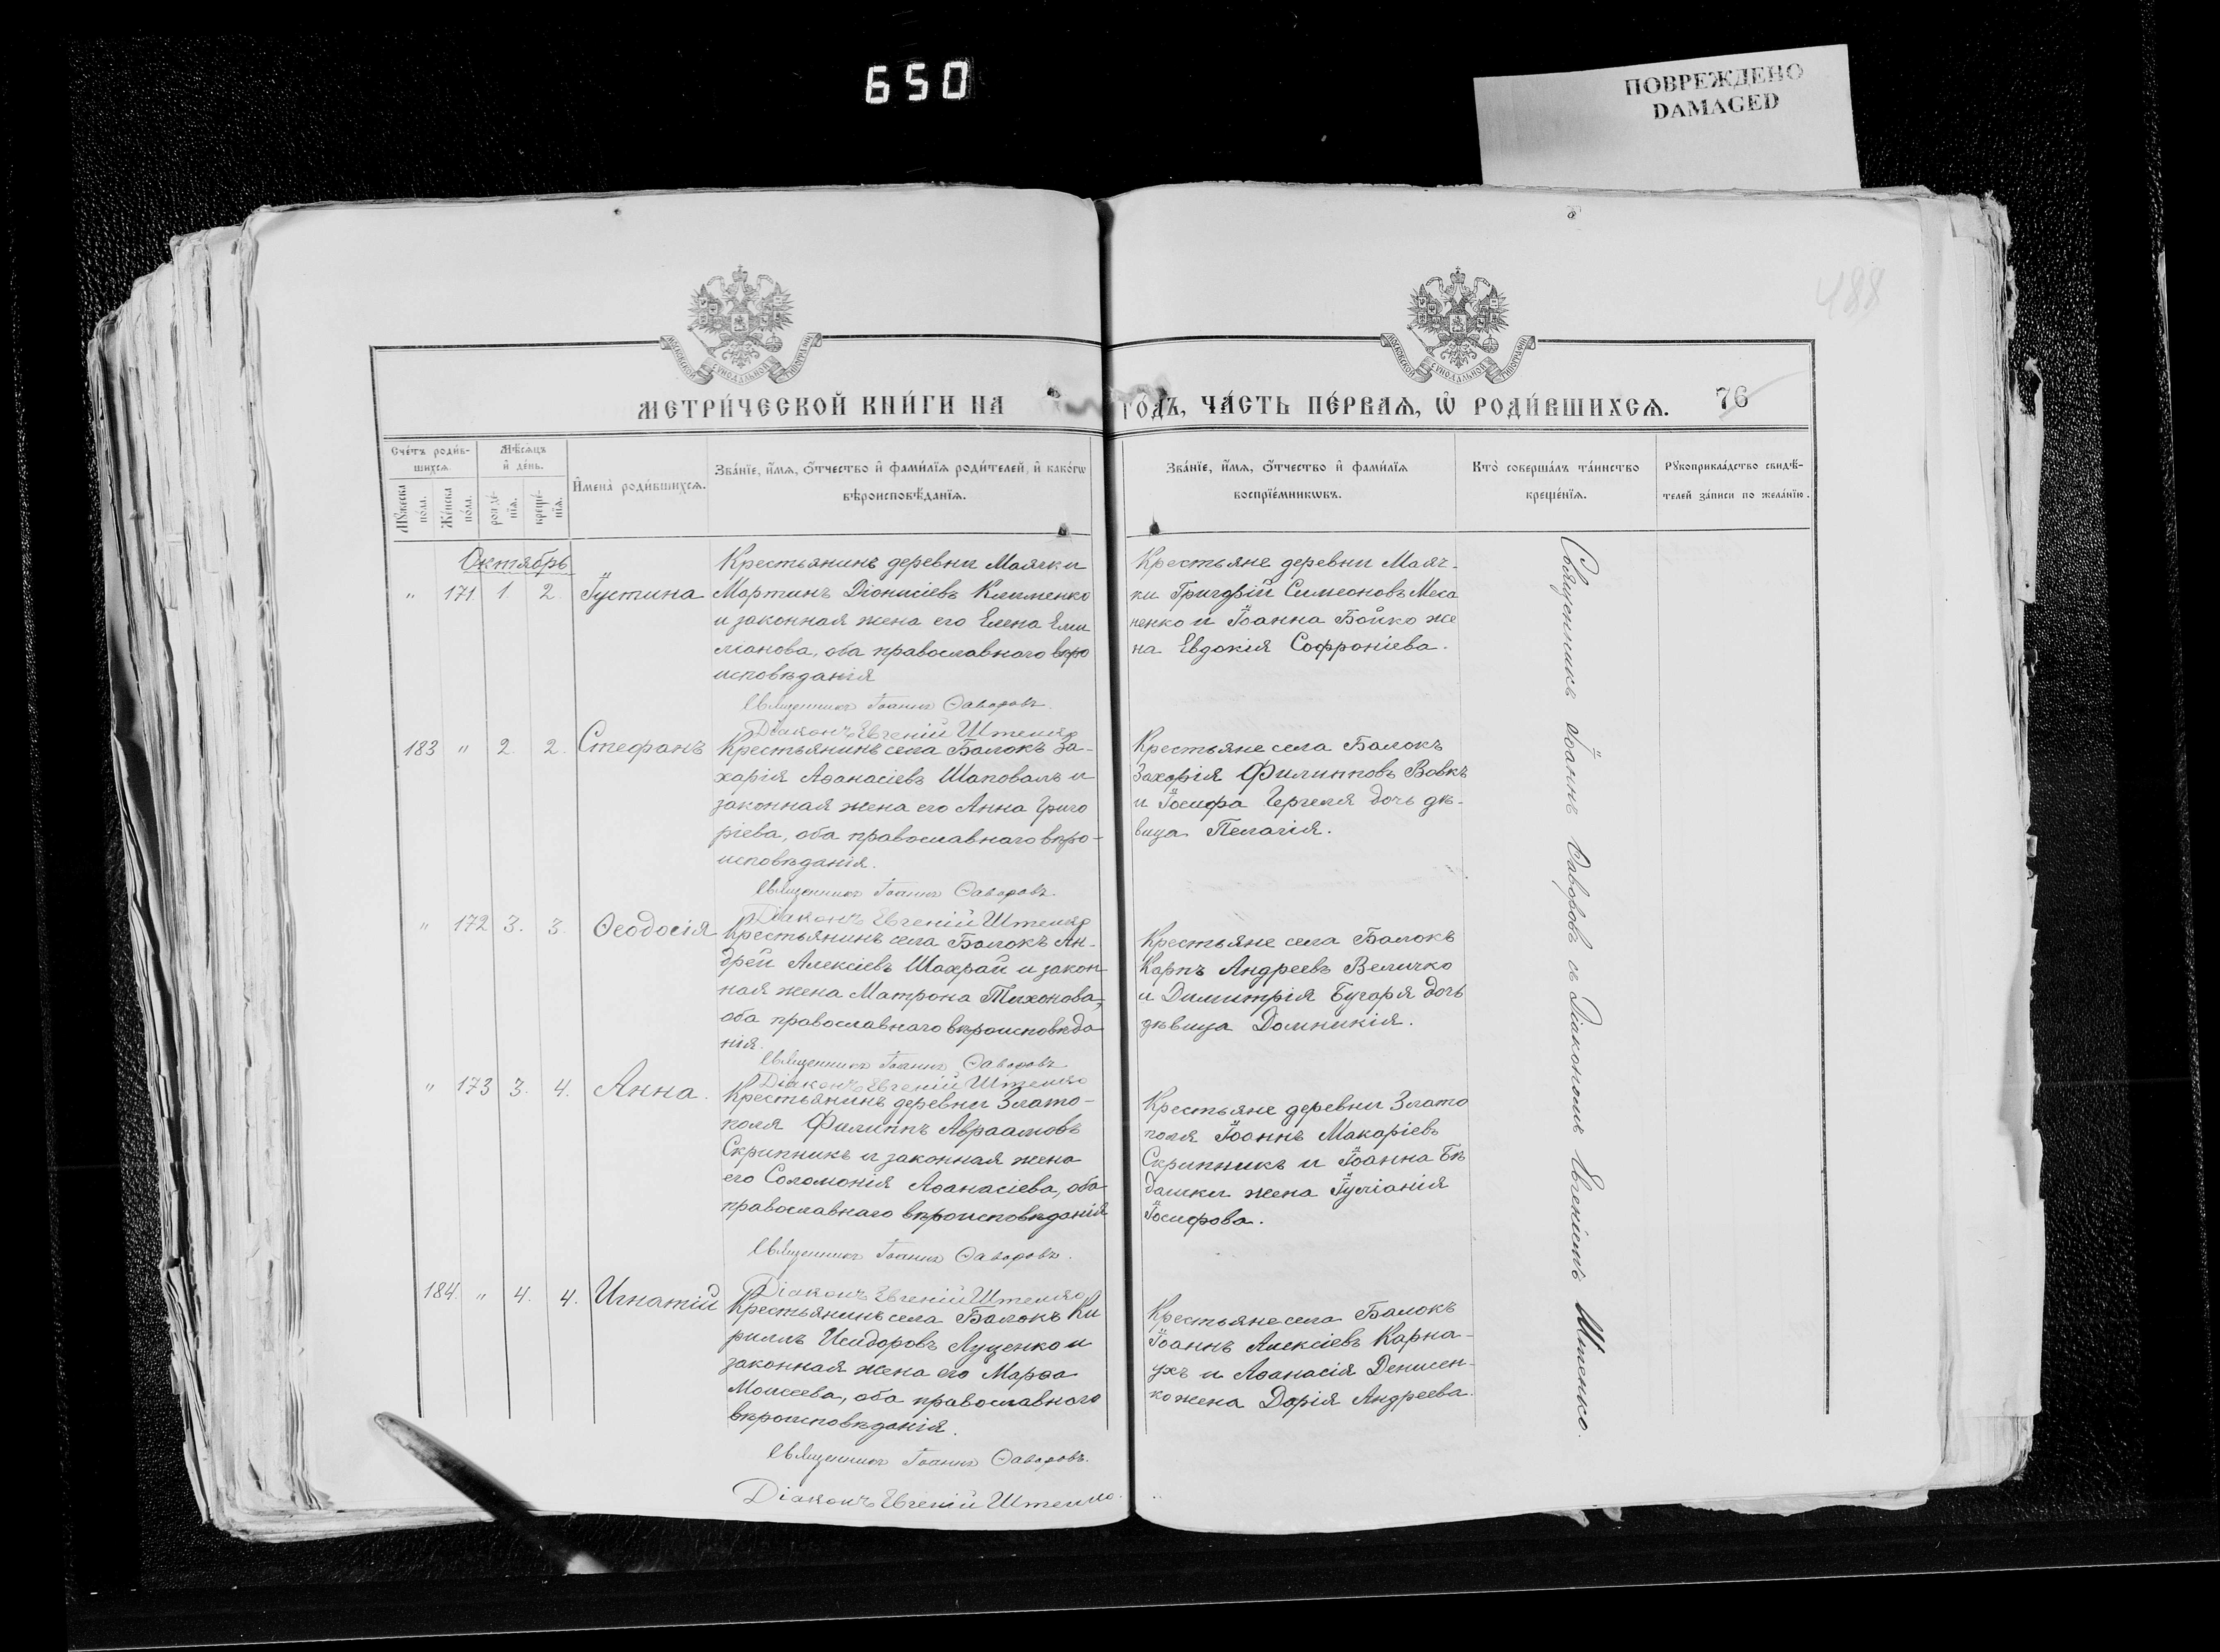 650
ПОВРЕЖДЕНО
DAMAGED
488
МОСКОВСКОЙ СѴНОДАЛЬНОЙ ТИПОГРАФІИ
МОСКОВСКОЙ СѴНОДАЛЬНОЙ ТИПОГРАФІИ
МЕТРИ́ЧЕСКОЙ КНИ́ГИ НА
ГО́ДЪ, ЧА́СТЬ ПЕ́РВАѦ, Ѡ҆ РОДИ́ВШИХСѦ. 76
Сче́тъ роди́в-
шихсѧ.
Мꙋ́жеска по́ла.
Же́нска по́ла.
Мѣ́сѧцъ
и҆ де́нь.
рожде́-
нїѧ.
креще́-
нїѧ.
И҆мена̀ роди́вшихсѧ.
Зва́нїе, и҆́мѧ, ѻ҆́тчество и҆ фами́лїѧ роди́телей, и҆ како́гѡ
вѣроисповѣ́данїѧ.
Зва́нїе, и҆́мѧ, ѻ҆́тчество и҆ фами́лїѧ
воспрїе́мникѡвъ.
Кто̀ соверша́лъ та́инство
креще́нїѧ.
Рꙋкоприкла́дство свидѣ́-
телей за́писи по жела́нїю.
Октябрь
" 171. 1. 2. Іустина
Крестьянинъ деревни Маячки
Мартинъ Діонисіевъ Клименко
и законная жена его Елена Еми
ліанова, оба православнаго веро
исповѣданія
Священникъ Іоаннъ Ѳаворовъ.
Діаконъ Евгеній Штепко
Крестьяне деревни Маяч-
ки Григорій Симеоновъ Меса
ненко и Іоанна Бойко же
на Евдокія Софроніева.
183 " 2. 2. Стефанъ
Крестьянинъ села Балокъ За-
харія Аѳанасіевъ Шаповалъ и
законная жена его Анна Григо
ріева, оба православнаго вѣро-
исповѣданія.
Священникъ Іоаннъ Ѳаворовъ.
Діаконъ Евгеній Штепко
Крестьяне села Балокъ
Захарія Филипповъ Вовкъ
и Іосифа Гергеля дочь дѣ-
вица Пелагія.
" 172 3. 3. Ѳеодосія
Крестьянинъ села Балокъ Ан-
дрей Алексіевъ Шахрай и закон
ная жена Матрона Тихонова,
оба православнаго вѣроисповѣда
нія.
Священникъ Іоаннъ Ѳаворовъ
Діаконъ Евгеній Штепко
Крестьяне села Балокъ
Карпъ Андреевъ Величко
и Димитрія Бугаря дочь
дѣвица Домникія.
" 173 3. 4. Анна.
Крестьянинъ деревни Злато-
поля Филиппъ Авраамовъ
Скрипникъ и законная жена
его Соломонія Аѳанасіева, оба
православнаго вѣроисповѣданія
Священникъ Іоаннъ Ѳаворовъ.
Діаконъ Евгеній Штепко
Крестьяне деревни Злато
поля Іоаннъ Макаріевъ
Скрипникъ и Іоанна Бѣ
дашки жена Іуліанія
Іосифова.
184. " 4. 4. Игнатій
Крестьянинъ села Балокъ Ки
риллъ Исидоровъ Луценко и
законная жена его Марѳа
Моисеева, оба православнаго
вѣроисповѣданія.
Священникъ Іоаннъ Ѳаворовъ.
Діаконъ Евгеній Штепко.
Крестьяне села Балокъ
Іоаннъ Алексіевъ Карна-
ухъ и Аѳанасія Денисен-
ко жена Дарія Андреева.
Священникъ Іоаннъ Ѳаворовъ съ Діакономъ Евгеніемъ Штепко.